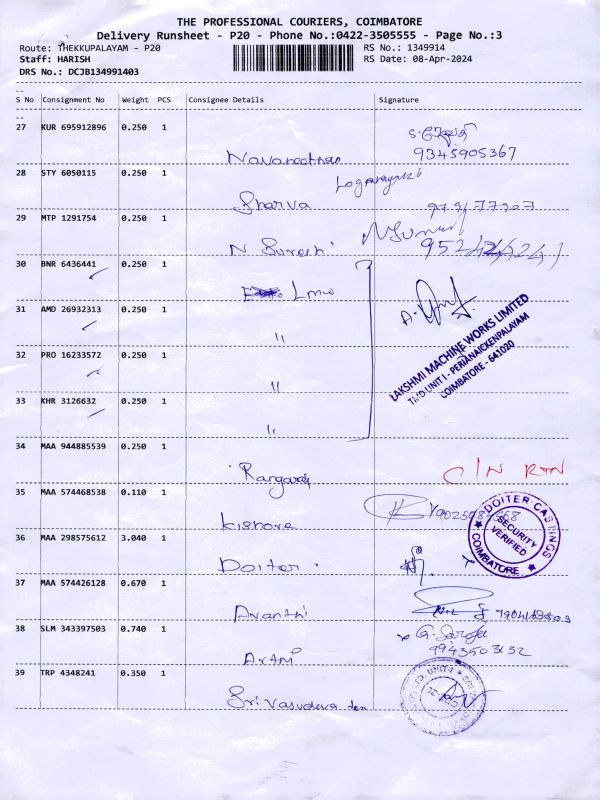 THE PROFESSIONAL COURIERS, COIMBATORE
Delivery Runsheet - P20 - Phone No.:0422-3505555 - Page No.:3
Route: THEKKUPALAYAM - P20 RS No.: 1349914
Staff: HARISH RS Date: 08-Apr-2024
DRS No.: DCJB134991403
--
S No Consignment No Weight PCS Consignee Details Signature
--
27 KUR 695912896 0.250 1
9345905367
28 STY 6050115 0.250 1
Sharva
29 MTP 1291754 0.250 1
N Suresh
30 BNR 6436441 0.250 1
Lmw
31 AMD 26932313 0.250 1
"
LAKSHMI MACHINE WORKS LIMITED
TMD UNIT I - PERIANAICKENPALAYAM
COIMBATORE - 641020
32 PRO 16233572 0.250 1
"
33 KHR 3126632 0.250 1
"
34 MAA 944885539 0.250 1
Rangaraj C/N RTN
35 MAA 574468538 0.110 1
Kishore
DOITER CASTINGS
SECURITY VERIFIED
COIMBATORE
36 MAA 298575612 3.040 1
Doiter
37 MAA 574426128 0.670 1
Ananthi
38 SLM 343397503 0.740 1
G. Saroja
9943503132
39 TRP 4348241 0.350 1
Sri Vasudeva